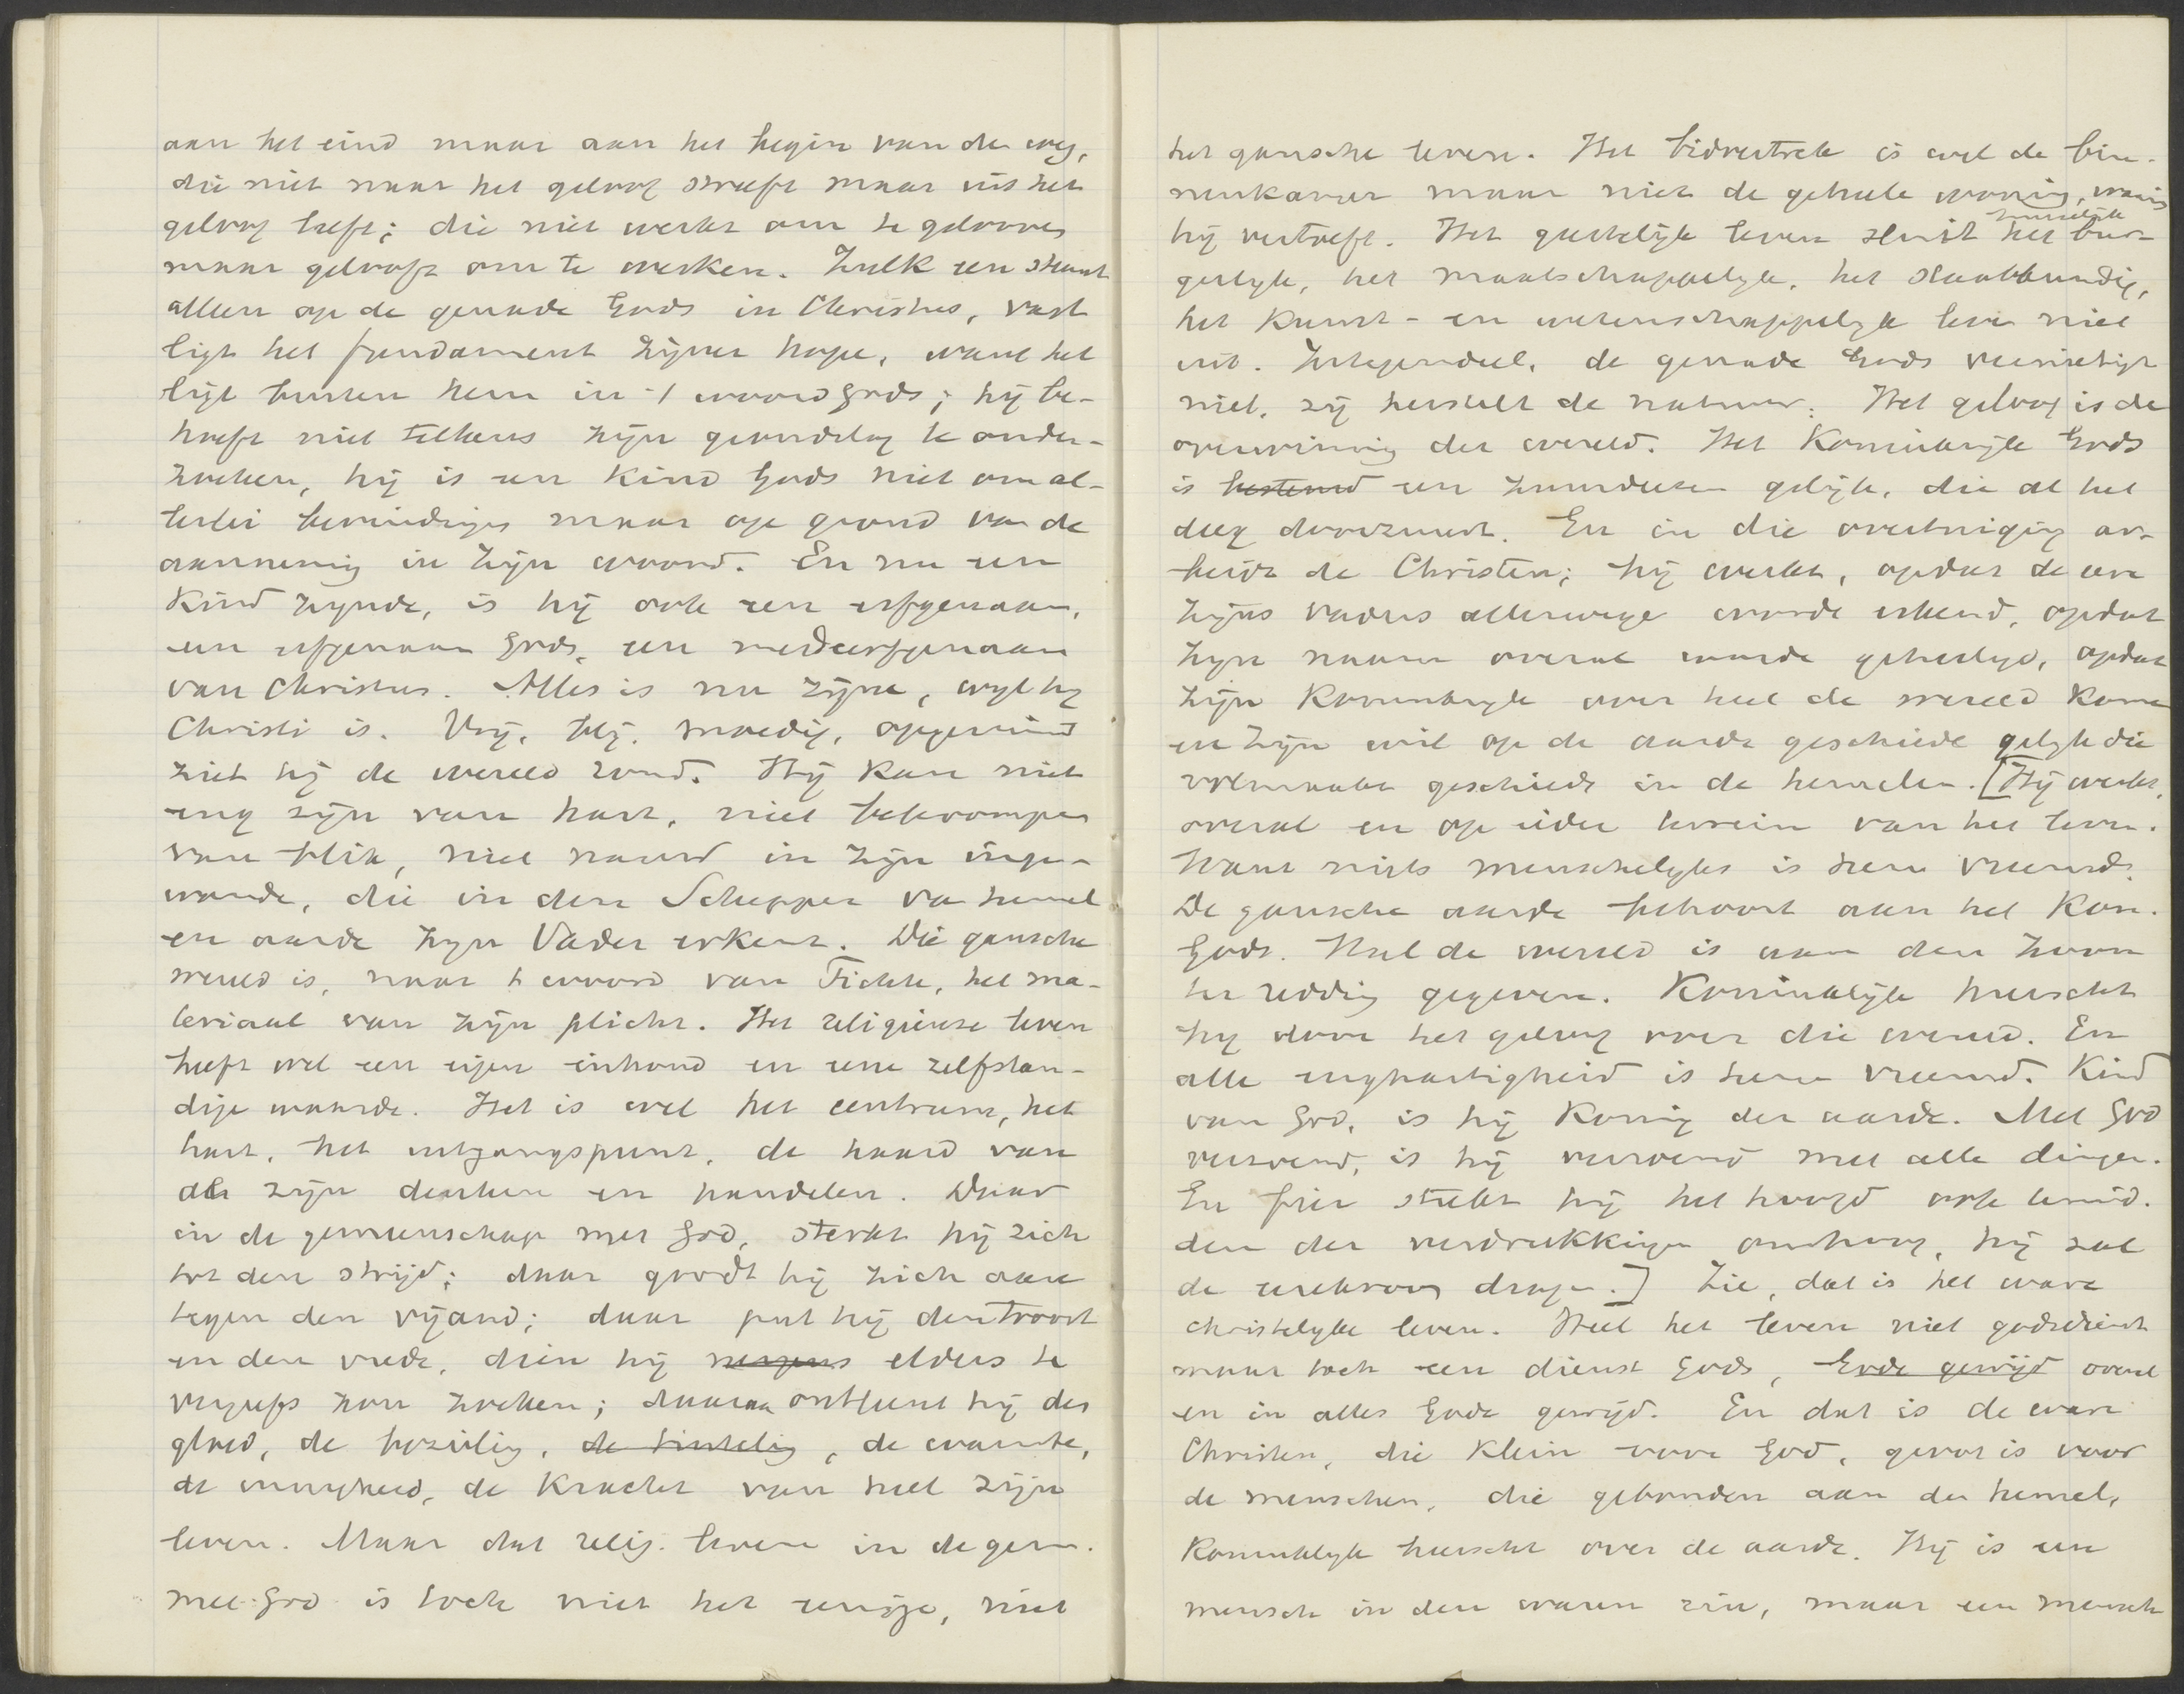 aan het eind maar aan het begin van den weg,
die niet naar het geloof streeft maar uit het
geloof leeft; die niet werkt om te gelooven
maar gelooft om te werken. Zulk een staat
alleen op de genade Gods in Christus, vast
ligt het fundament zijner hope, want het
ligt buiten hem in 't woord Gods; hij be-
hoeft niet telkens zijn grondslag te onder-
zoeken, hij is een kind Gods niet om al-
lerlei bevindingen maar op grond van de
aanneming in zijn woord. En nu een
kind zijnde, is hij ook een erfgenaam,
een erfgenaam Gods, een medeerfgenaam
van Christus. Alles is nu zijne, wijl hij
Christi is. Vrij, blij, moedig, opgeruimd
ziet hij de wereld rond. Hij kan niet
eng zijn van hart, niet bekrompen
van blik, niet nauw in zijn inge-
wande, die in den Schepper van hemel
en aarde zijn Vader erkent. Die gansche
wereld is, naar 't woord van Fichte, het ma-
teriaal van zijn plicht. Het religieuze leven
heeft wel een eigen inhoud en eene zelfstan-
dige waarde. Het is wel het centrum, het
hart, het uitgangspunt, de haard van
al zijn denken en handelen. Daar
in de gemeenschap met God, sterkt hij zich
tot den strijd; daar gordt hij zich aan
tegen den vijand; daar put hij den troost
en den vrede, dien hij nergens elders te
vergeefs zou zoeken; daaraan ontleent hij den
gloed, de bezieling, de tinteling, de warmte,
de innigheid, de kracht van heel zijn
leven. Maar dat relig. leven in de gem.
met God is toch niet het eenige, niet
het gansche leven. Het bidvertrek is wel de bin-
nenkamer maar niet de geheele woning, waarin
hij vertoeft. Het geestelijk leven sluit het huiselijk het bur-
gerlijk, het maatschappelijk, het staatkundig,
het kunst- en wetenschappelijk leven niet
uit. Integendeel, de genade Gods vernietigt
niet, zij herstelt de natuur. Het geloof is de
overwinning der wereld. Het Koninkrijk Gods
is bestemd een zuurdeesem gelijk, die al het
deeg doorzuurt. En in die overtuiging ar-
beidt de Christen; hij werkt, opdat de eere
zijns vaders allerwege worde erkend, opdat
zijn naam overal worde geheiligd, opdat
zijn Koninkrijk over heel de wereld kome
en zijn wil op de aarde geschiede gelijk die
volmaakt geschiedt in de hemelen. [Hij werkt,
overal en op ieder terrein van het leven.
Want niets menschelijks is hem vreemd.
De gansche aarde behoort aan het Kon.
Gods. Heel de wereld is aan den Zoon
ter redding gegeven. Koninklijk heerscht
hij door het geloof over die wereld. En
alle enghartigheid is hem vreemd. Kind
van God, is hij koning der aarde. Met God
verzoend, is hij verzoend met alle dingen.
En fier steekt hij het hoofd ook temid-
den der verdrukkingen omhoog, hij zal
de eerekroon dragen.] Zie, dat is het ware
christelijke leven. Heel het leven niet godsdienst
maar toch een dienst Gods, Gode gewijd overal
en in alles Gode gewijd. En dat is de ware
Christen, die klein voor God, groot is voor
de menschen, die gebonden aan den hemel,
koninklijk heerscht over de aarde. Hij is een
mensch in den waren zin, maar een mensch